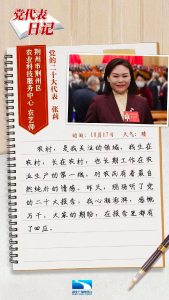 党代表
日记
党的二十大代表 张莉
荆州市荆州区
农业科技服务中心 农艺师
时间：10月17日 天气：晴
农村，是我关注的领域。我生在
农村，长在农村，也长期工作在农
业生产的第一线，对农民有着最自
然纯朴的情感。昨天，现场听了党
的二十大报告，我心潮澎湃，感慨
万千，大家的期盼，在报告里都有
了回应。